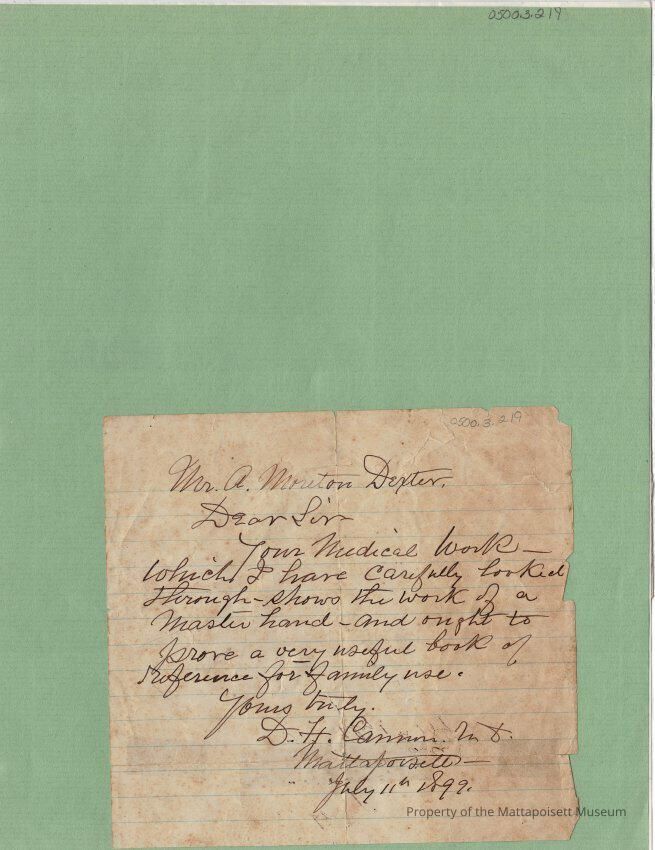 0500.3.219
0500.3.219
Mr. A. Moreton Dexter.
Dear Sir
Your Medical Work —
which I have carefully looked
through - shows the work of a
Master hand - and ought to
prove a very useful book of
reference for family use.
Yours truly.
D. H. Cannon. M. D.
Mattapoisett —
July 11th 1899.
Property of the Mattapoisett Museum